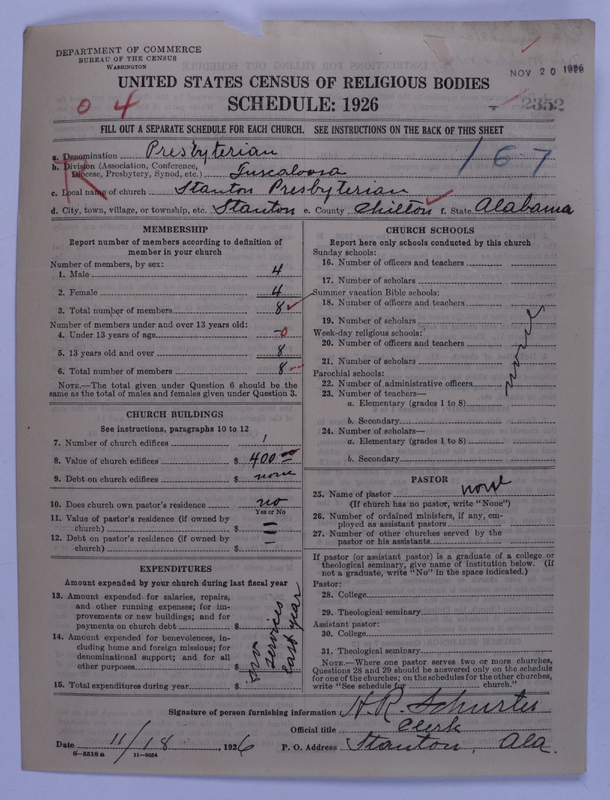 DEPARTMENT OF COMMERCE
BUREAU OF THE CENSUS
WASHINGTON
NOV 20 1926
UNITED STATES CENSUS OF RELIGIOUS BODIES
SCHEDULE: 1926
0 4
2352
FILL OUT A SEPARATE SCHEDULE FOR EACH CHURCH. SEE INSTRUCTIONS ON THE BACK OF THIS SHEET
167
a. Denomination Presbyterian
b. Division (Association, Conference, Diocese, Presbytery, Synod, etc.) Tuscaloosa
c. Local name of church Stanton Presbyterian
d. City, town, village, or township, etc. Stanton e. County Chilton f. State Alabama
MEMBERSHIP
Report number of members according to definition of
member in your church
Number of members, by sex:
1. Male 4
2. Female 4
3. Total number of members 8
Number of members under and over 13 years old:
4. Under 13 years of age 0
5. 13 years old and over 8
6. Total number of members 8
NOTE.—The total given under Question 6 should be the
same as the total of males and females given under Question 3.
CHURCH BUILDINGS
See instructions, paragraphs 10 to 12
7. Number of church edifices 1
8. Value of church edifices $ 400.00
9. Debt on church edifices $ none
10. Does church own pastor's residence no
Yes or No
11. Value of pastor's residence (if owned by
church) $
12. Debt on pastor's residence (if owned by
church) $
EXPENDITURES
Amount expended by your church during last fiscal year
13. Amount expended for salaries, repairs,
and other running expenses; for im-
provements or new buildings; and for
payments on church debt $
14. Amount expended for benevolences, in-
cluding home and foreign missions; for
denominational support; and for all
other purposes $
15. Total expenditures during year $
no
services
last year
CHURCH SCHOOLS
Report here only schools conducted by this church
Sunday schools:
16. Number of officers and teachers
17. Number of scholars
Summer vacation Bible schools:
18. Number of officers and teachers
19. Number of scholars
Week-day religious schools:
20. Number of officers and teachers
21. Number of scholars
Parochial schools:
22. Number of administrative officers
23. Number of teachers—
a. Elementary (grades 1 to 8)
b. Secondary
24. Number of scholars—
a. Elementary (grades 1 to 8)
b. Secondary
none
PASTOR
25. Name of pastor none
(If church has no pastor, write "None")
26. Number of ordained ministers, if any, em-
ployed as assistant pastors
27. Number of other churches served by the
pastor or his assistants
If pastor (or assistant pastor) is a graduate of a college or
theological seminary, give name of institution below. (If
not a graduate, write "No" in the space indicated.)
Pastor:
28. College
29. Theological seminary
Assistant pastor:
30. College
31. Theological seminary
NOTE.—Where one pastor serves two or more churches,
Questions 28 and 29 should be answered only on the schedule
for one of the churches; on the schedules for the other churches,
write "See schedule for church."
Signature of person furnishing information H. R. Schurter
Official title Clerk
Date 11/18, 1926 P. O. Address Stanton, Ala.
11—9054